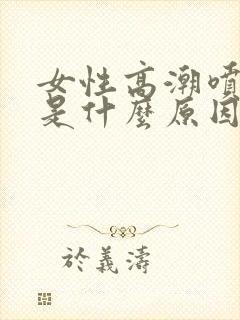 女性高潮噴
是什麼原因
於義濤